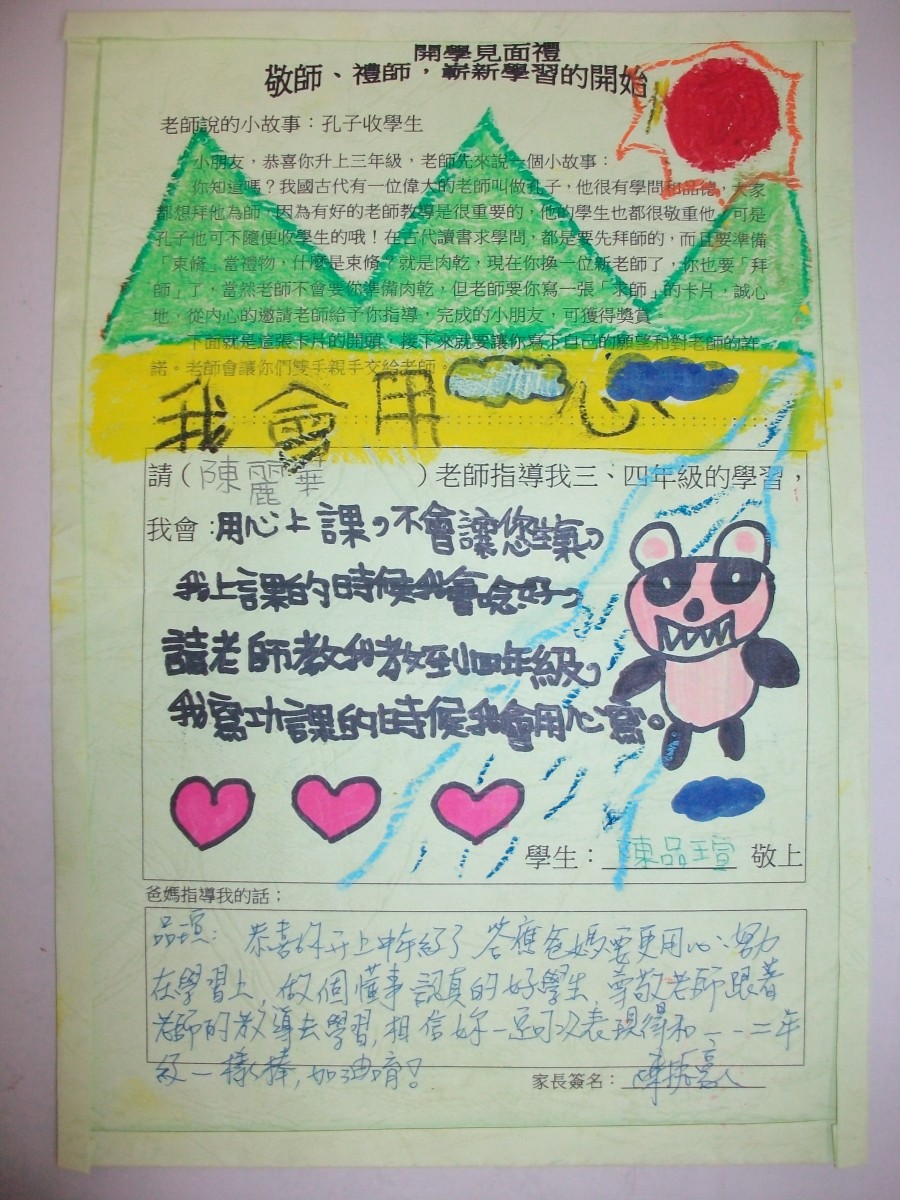 開學見面禮
敬師、禮師，嶄新學習的開始
老師說的小故事：孔子收學生
小朋友，恭喜你升上三年級，老師先來說一個小故事：
你知道嗎？我國古代有一位偉大的老師叫做孔子，他很有學問和品德，大家
都想拜他為師，因為有好的老師教導是很重要的，他的學生也都很敬重他，可是
孔子他可不隨便收學生的哦！在古代讀書求學問，都是要先拜師的，而且要準備
「束脩」當禮物，什麼是束脩？就是肉乾，現在你換一位新老師了，你也要「拜
師」了，當然老師不會要你準備肉乾，但老師要你寫一張「求師」的卡片，誠心
地，從內心的邀請老師給予你指導，完成的小朋友，可獲得獎賞
下面就是這張卡片的開頭，接下來就要讓你寫下自己的願望和對老師的許
諾。老師會讓你們雙手親手交給老師。
我會用心
請（陳麗華）老師指導我三、四年級的學習，
我會：用心上課，不會讓您生氣，
我上課的時候我會唸好，
請老師教我教到四年級，
我寫功課的時候我會用心寫。
學生：陳品瑄 敬上
爸媽指導我的話：
品瑄：恭喜妳升上中年級了 答應爸媽要更用心、努力
在學習上，做個懂事認真的好學生，尊敬老師跟著
老師的教導去學習，相信妳一定可以表現得和一、二年
級一樣棒，加油唷！
家長簽名：陳